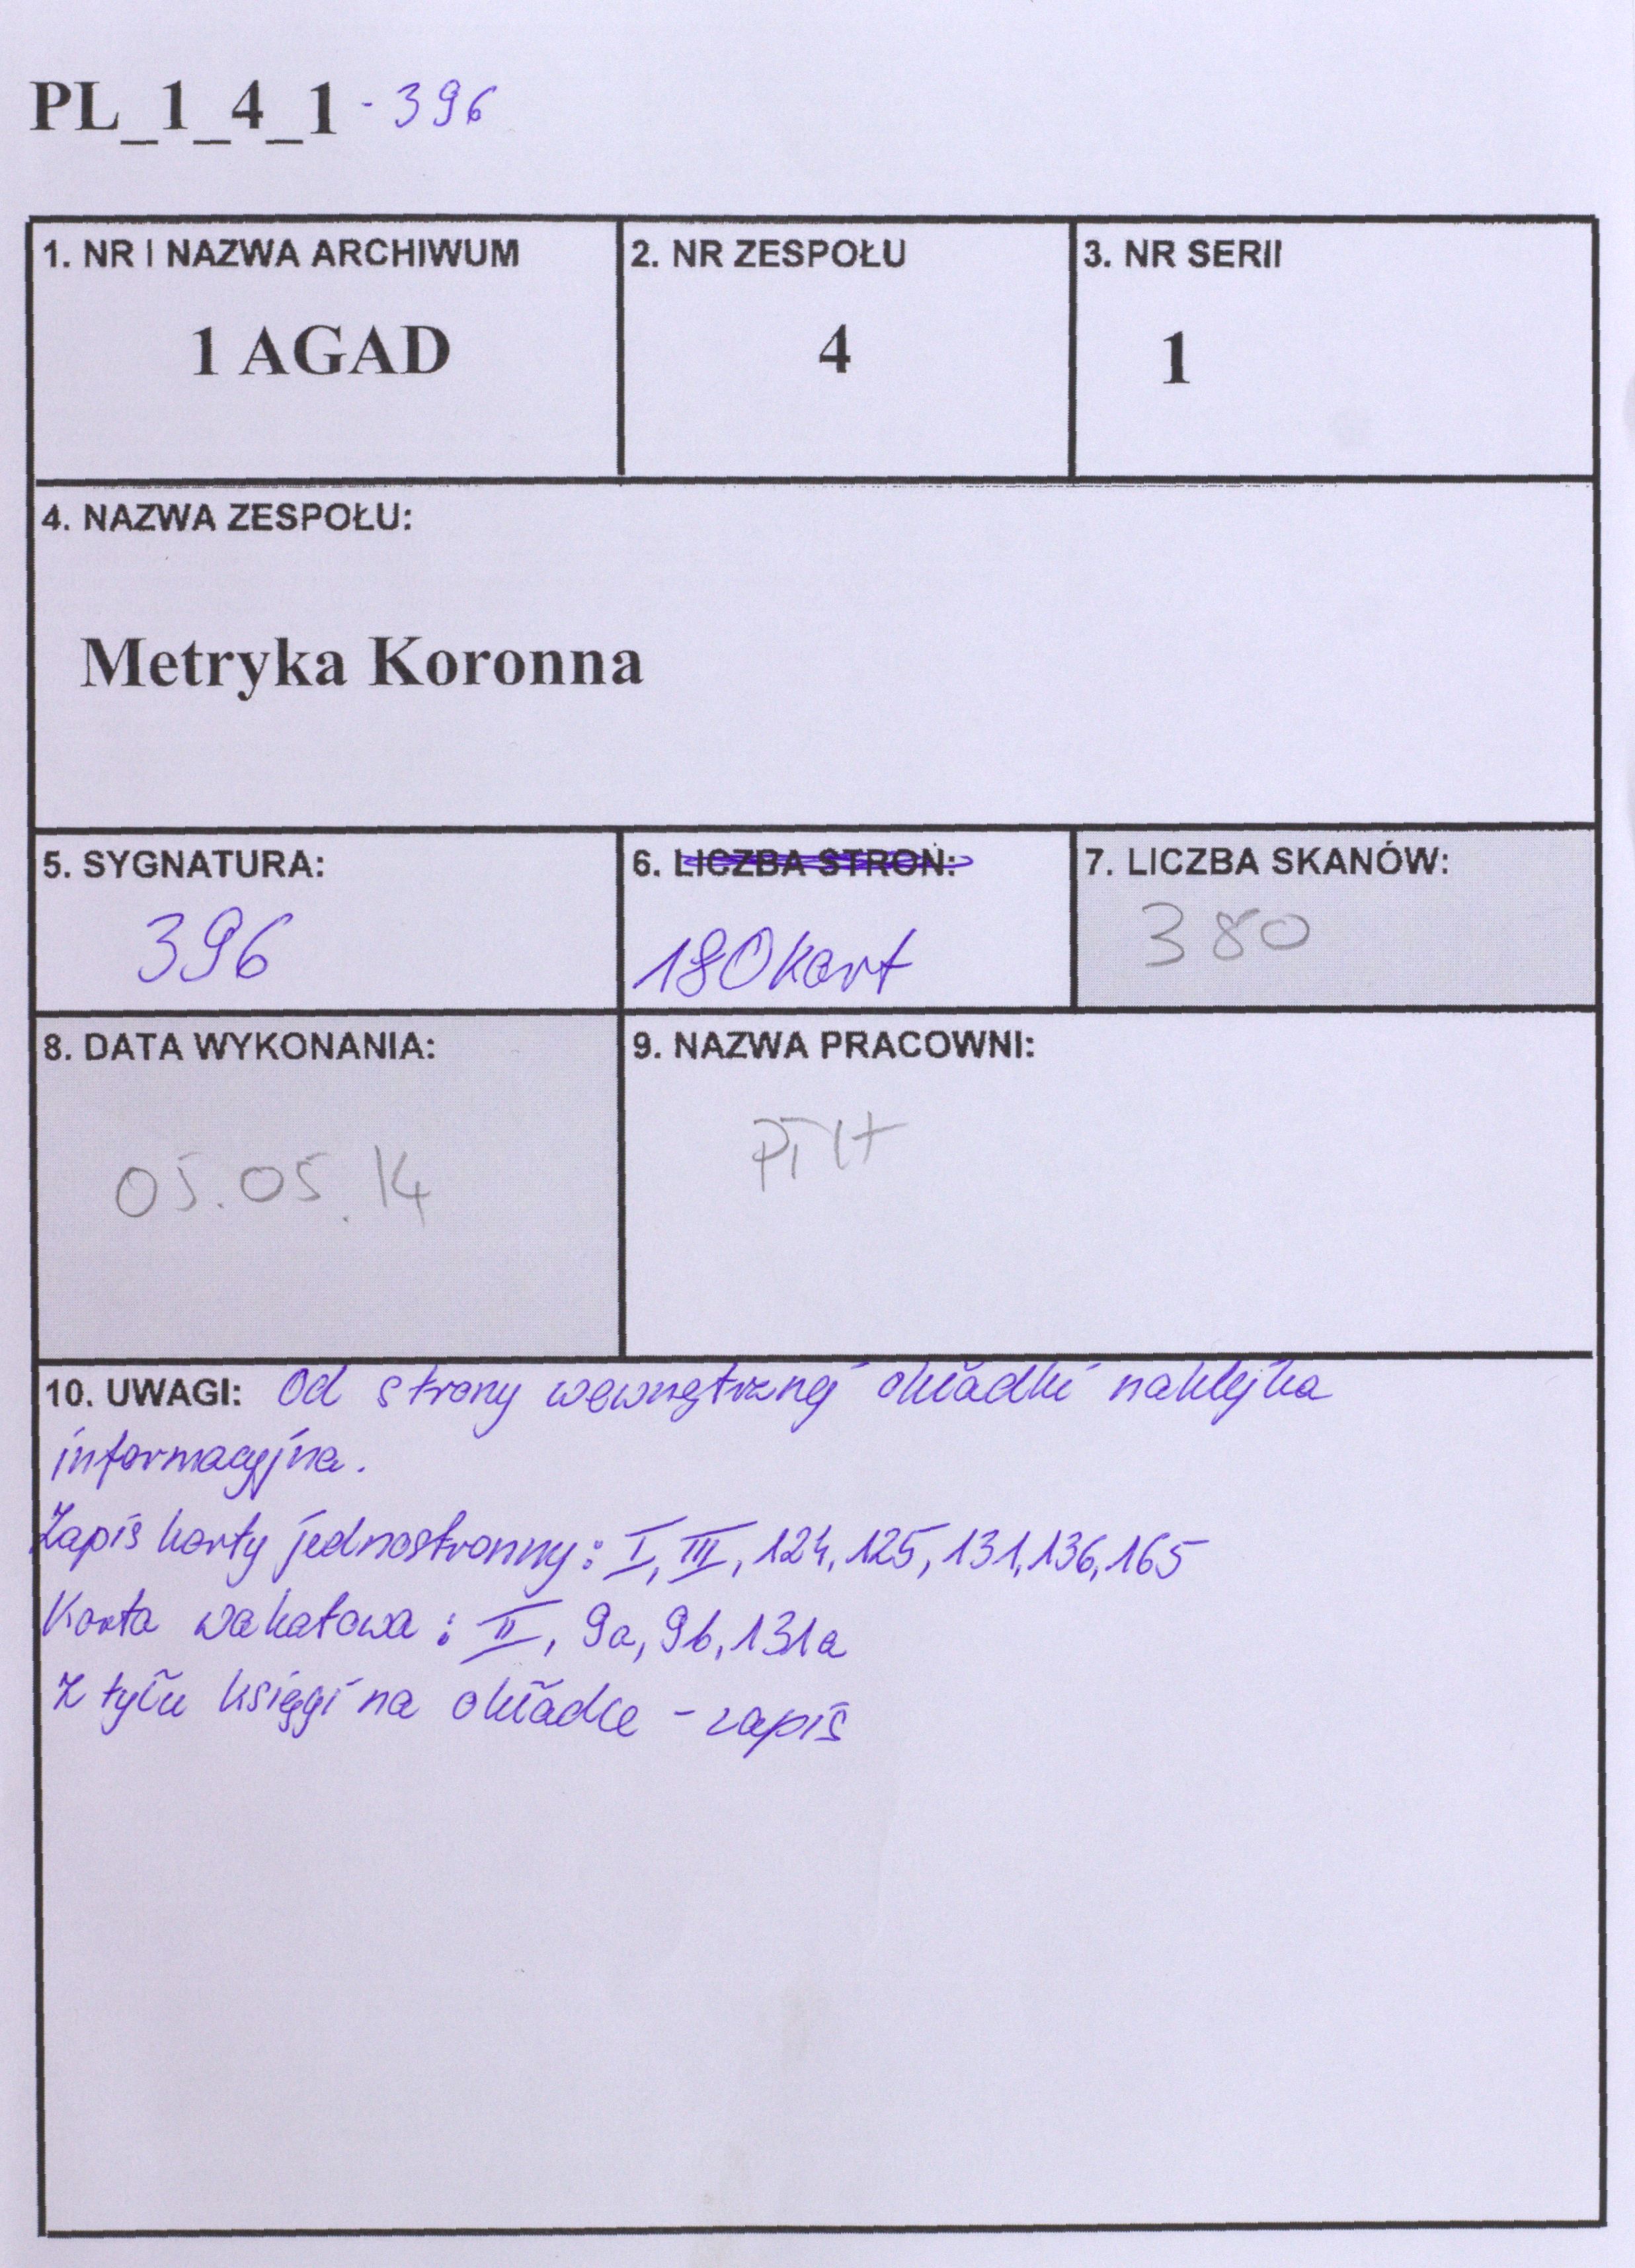 PL_1_4_1 - 396
1. NR I NAZWA ARCHIWUM
1 AGAD
2. NR ZESPOŁU
4
3. NR SERII
1
4. NAZWA ZESPOŁU:
Metryka Koronna
5. SYGNATURA:
396
6. LICZBA STRON:
180 kart
7. LICZBA SKANÓW:
380
8. DATA WYKONANIA:
05.05.14
9. NAZWA PRACOWNI:
10. UWAGI: Od strony wewnętrznej okładki naklejka
informacyjna.
Zapis karty jednostronny: I, III, 124, 125, 131, 136, 165
Karta wakatowa: II, 9a, 9b, 131a
Z tyłu księgi na okładce - zapis